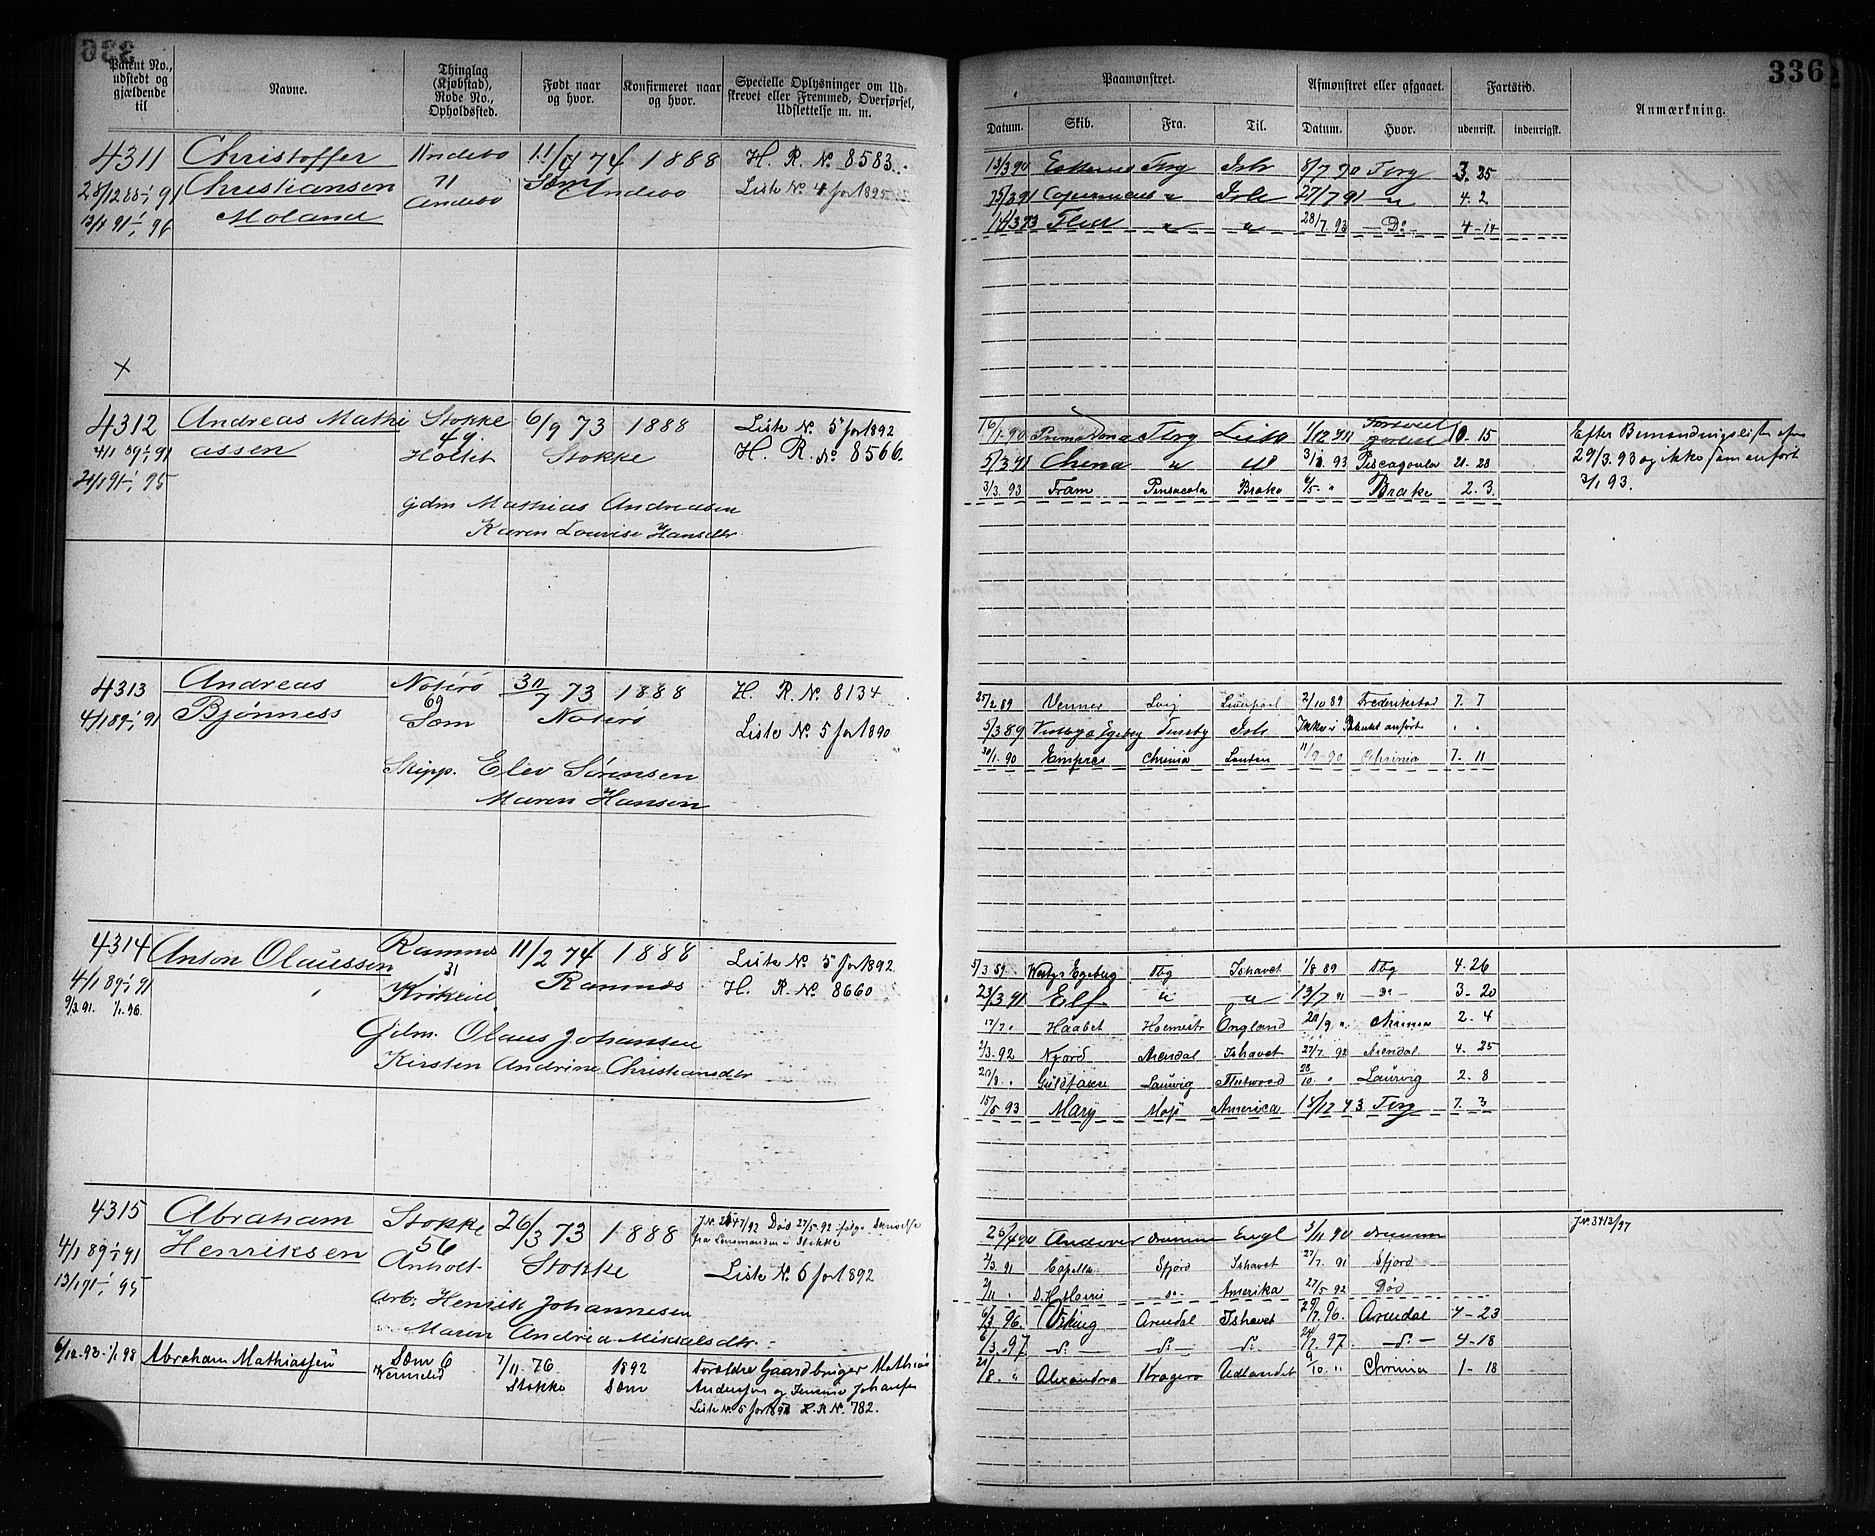 336
Patent No., udstedt og gjældende til
Navne.
Thinglag (Kjøbstad), Rode No., Opholdssted.
Født naar og hvor.
Konfirmeret naar og hvor.
Specielle Oplysninger om Udskrevet eller Fremmed, Overførsel, Udslettelse m. m.
4311 Christoffer Andebø 11/7 74 1888 H. R. No 8583.
28/12 88-1/1 91 Christiansen 71 Sem Andebo Liste No 4 for 1895
13/1 91-1/1 96 Moland Andebo
4312 Andreas Mathi Stokke 6/9 73 1888 Liste No 5 for 1892
4/1 89-1/1 91 assen 49. Holtet Stokke H. R. No 8566.
21/1 91-1/1 95
gdm Mathias Andreasen
Karen Lovise Hansdtr
4313 Andreas Notterø 30/7 73 1888 H. R. No. 8134
4/1 89-1/1 91 Bjønness 69 Sem Notterø Liste No 5 for 1890
Skipp. Elev Sørensen
Maren Hansen
4314 Anton Olaussen Ramnæs 11/2 74 1888 Liste No 5 for 1892
4/1 89-1/1 91 31 Ramnæs H. R. No. 8660
9/3 91. 1/1 96.
Gdm. Olaus Johansen
Kirsten Andrine Christiansdtr
4315 Abraham Stokke 26/3 73 1888 J.No. 2547/92 Død 27/5-92 ifølge Skrivelse
fra Lensmanden i Stokke
4/1 89-1/1 91 Henriksen 56 Anholt Stokke Liste No. 6 for 1892
13/1 91-1/1 95
Arb. Henrik Johannesen
Maren Andrea Mikkelsdtr
6/12-93-1/1 98 Abraham Mathiassen Sem 6 7/11 76 1892 Foreldre Gaardbruger Mathias
Stokke Sem Anderssen og Johansen
Liste No. 5 for H. R. No. 782.
336
Paamønstret.
Afmønstret eller afgaaet.
Fartstid.
Anmærkning.
Datum. Skib. Fra. Til. Datum. Hvor. udenrigst. indenrigst.
13/3 90 Tbrg Ish 8/7 90 Tbrg 3. 25
25/3 91 Copernicus " Ish 27/7 91 " 4. 2
14/3 93 Flora " " 28/7 93 Do 4-14
16/1-90 Prima Dona Tbrg Leith 1/12 911 10-15 Efter Bemandingsliste
5/3 91 China " 3/1 93 Pascagoula 21-28 29/3. 93 og ikke som anført
3/3. 93 Fram Pensacola Brake 6/5 " Brake 2. 3. 3/1 93.
25/2 89 Venner Lvig Liverpool 2/10 89 Frederikstad 7. 7
5/3 89 Vestbye Egeberg Tønsbg Ish Ikke i Patentet anført " "
30/1-90 Empres Chrinia London 11/9-90 Chrinia 7. 11
5/3 89 Westye Egeberg Tbg Ishavet 1/8 89 Tbg 4. 26
23/3 91 Elf " " 13/7 91 Do 3-20
17/7 " Haabet England 20/9 " Chrinia 2. 4
2/3. 92 Njord Arendal Ishavet 27/7 92 Arendal 4. 25
20/8 " Guldfaxe Laurvig Fleetwood 28/10 " Laurvig 2. 8
15/5 93 Mary Moss America 18/12 93 Tbrg 7. 3
26/4 90 Andover Drammen Engl 5/11 90 Drammen J.No. 3412/97
2/3 91 Capella Sfjord Ishavet 27/7 91 Sfjord
2/11 " Do Amerika 27/5 92 Død
6/3. 96. Viking Arendal Ishavet 29/7. 96. Arendal 4-23
6/3. 97 Do Do Do 24/7. 97. Do 4-18
21/8. " Alexandra Kragerø Udlandet 9/10. " Chrinia 1-18